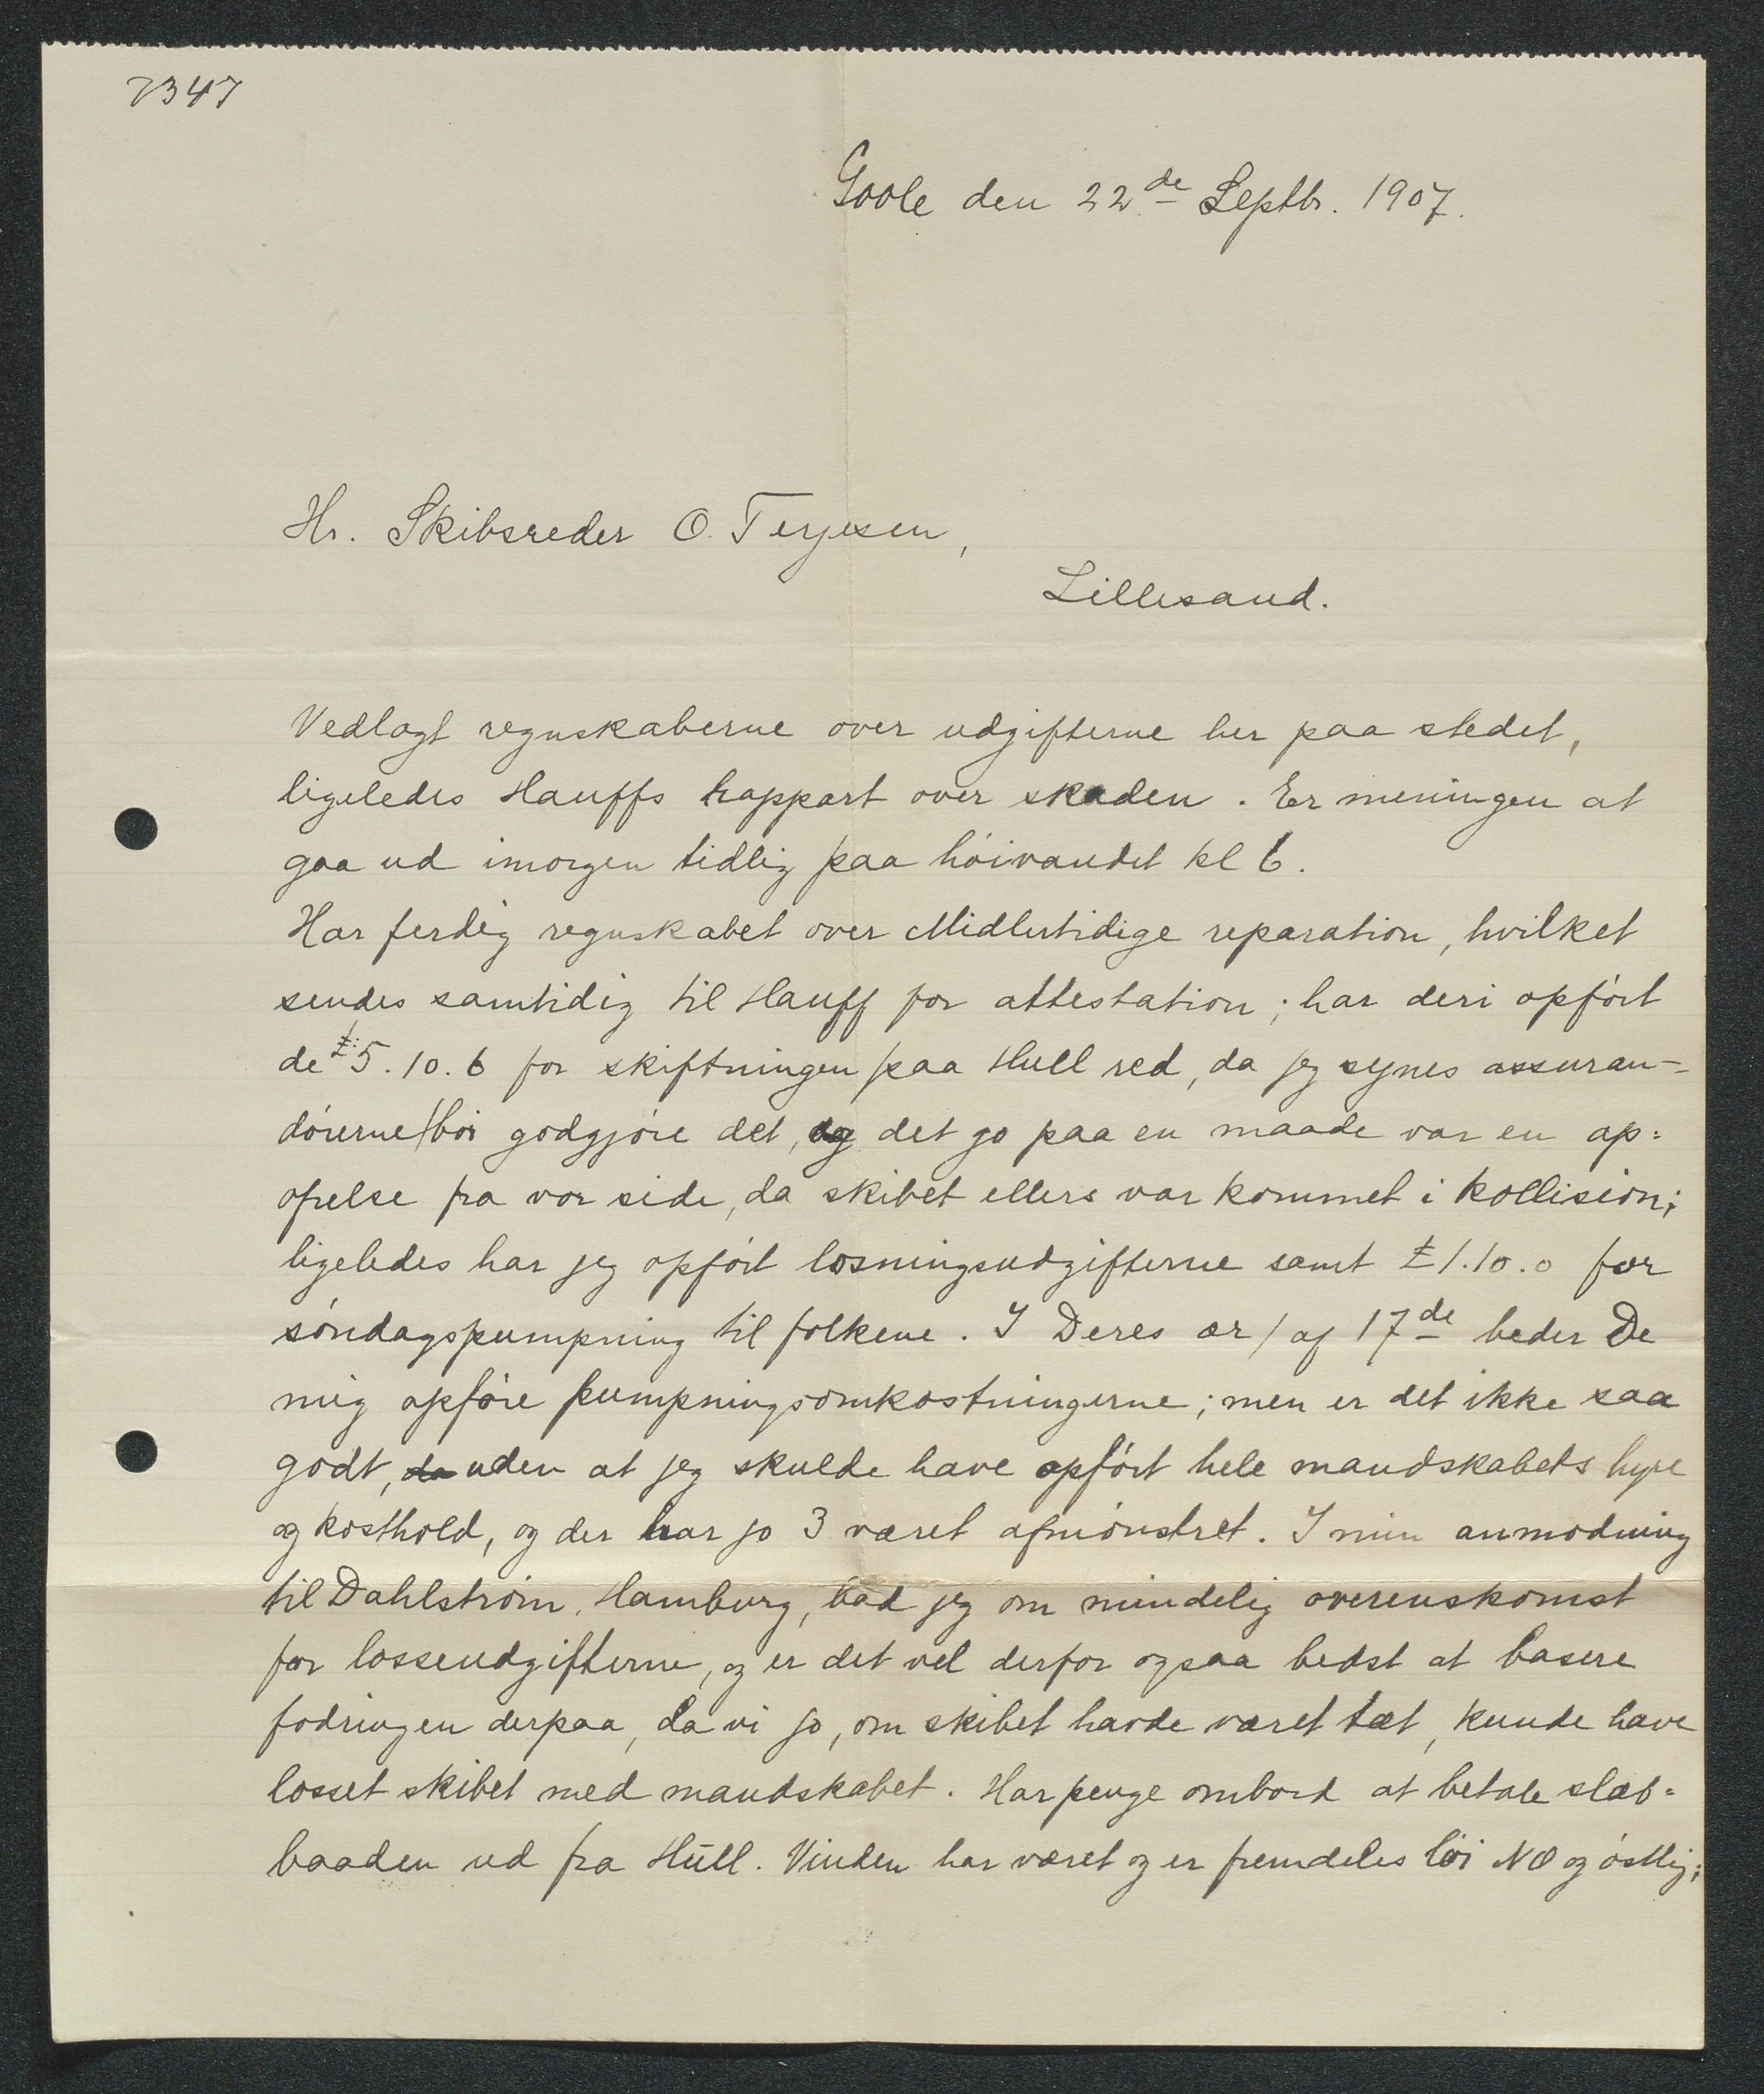 7347
Goole den 22de Septbr. 1907.
Hr. Skibsreder O. Terjesen,
Lillesand.
Vedlagt regnskaberne over udgifterne her paa stedet,
ligeledes Hauffs rappart over skaden. Er meningen at
gaa ud imorgen tidlig paa höivandet kl 6.
Har ferdig regnskabet over Midlertidige reparation, hvilket
sendes samtidig til Hauff for attestation; har deri opfört
de £5.10.6 for skiftningen paa Hull red, da jeg synes assuran-
dörerne bör godgjöre det, og det jo paa en maade var en op=
ofrelse fra vor side, da skibet ellers var kommet i kollision;
ligeledes har jeg opfört losningsudgifterne samt £1.10.0 for
söndagspumpning til folkene. I Deres ær/ af 17de beder De
mig opföre pumpningsomkostningerne; men er det ikke saa
godt, da uden at jeg skulde have opfört hele mandskabets hyre
og kosthold, og der har jo 3 været afmönstret. I min anmodning
til Dahlström, Hamburg, bad jeg om mindelig overenskomst
for losseudgifterne, og er det vel derfor ogsaa bedst at basere
fodringen derpaa, da vi jo, om skibet havde været tæt, kunde have
losset skibet med mandskabet. Har penge ombord at betale slæb=
baaden ud fra Hull. Vinden har været og er fremdeles löi NO og östlig;